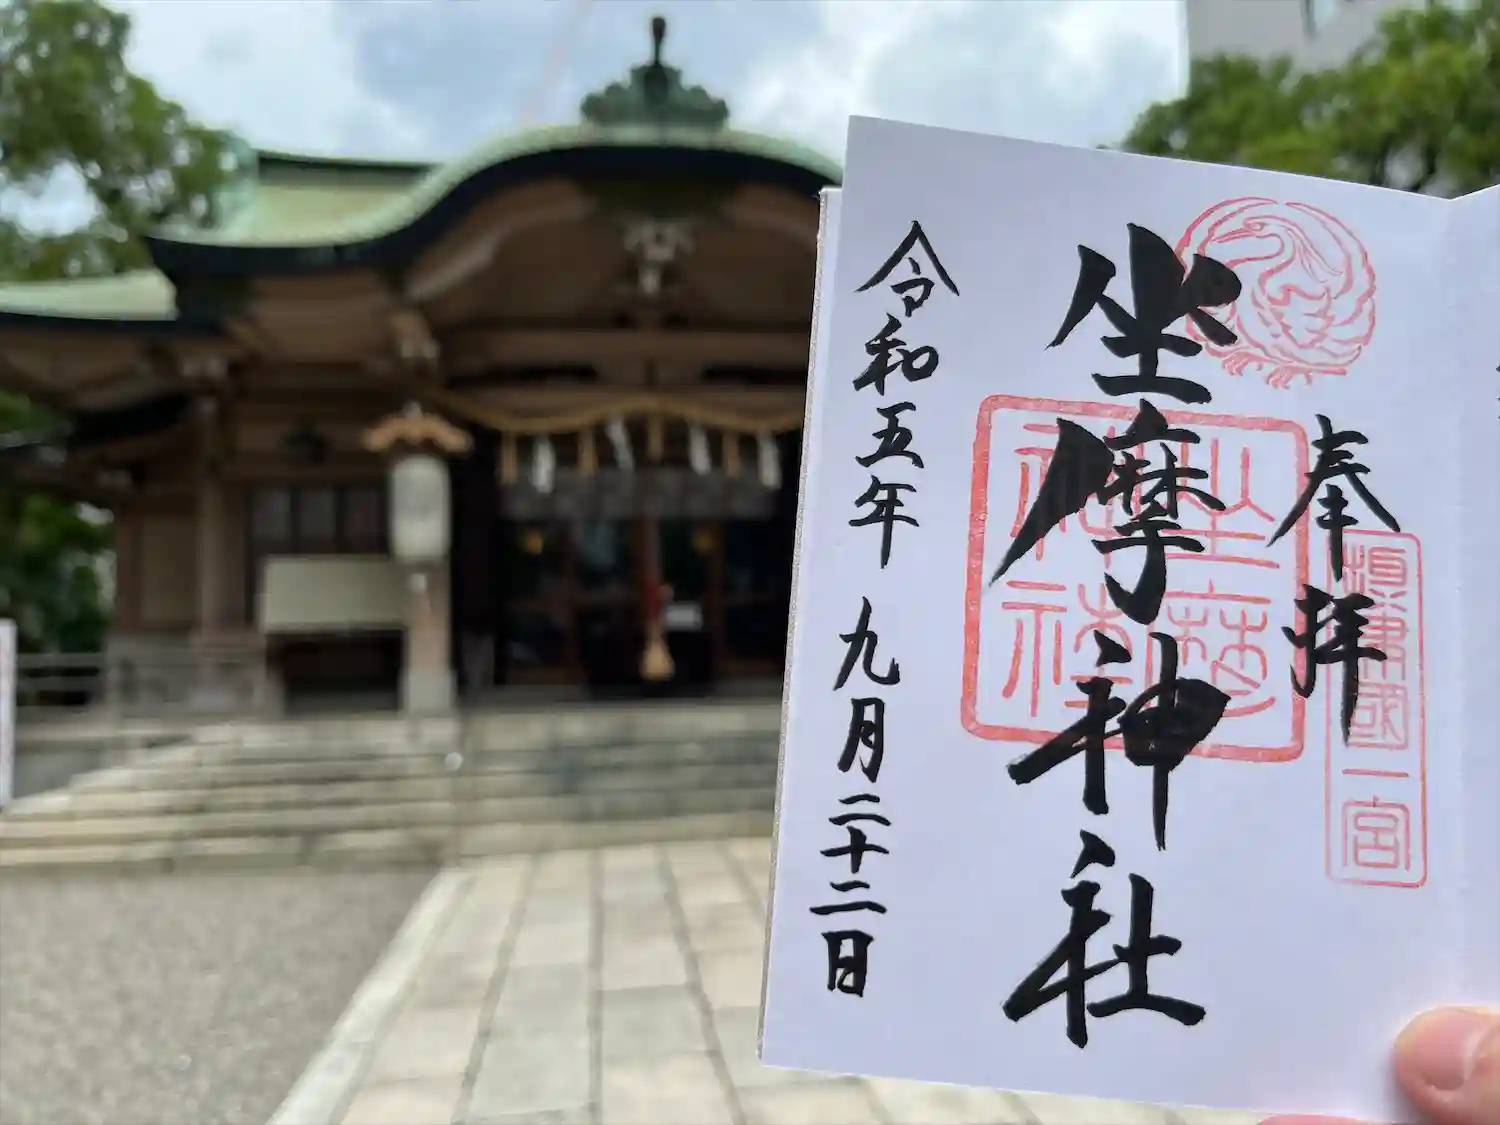 奉拝
摂津國一宮
坐摩神社
坐摩神社
令和五年九月二十二日